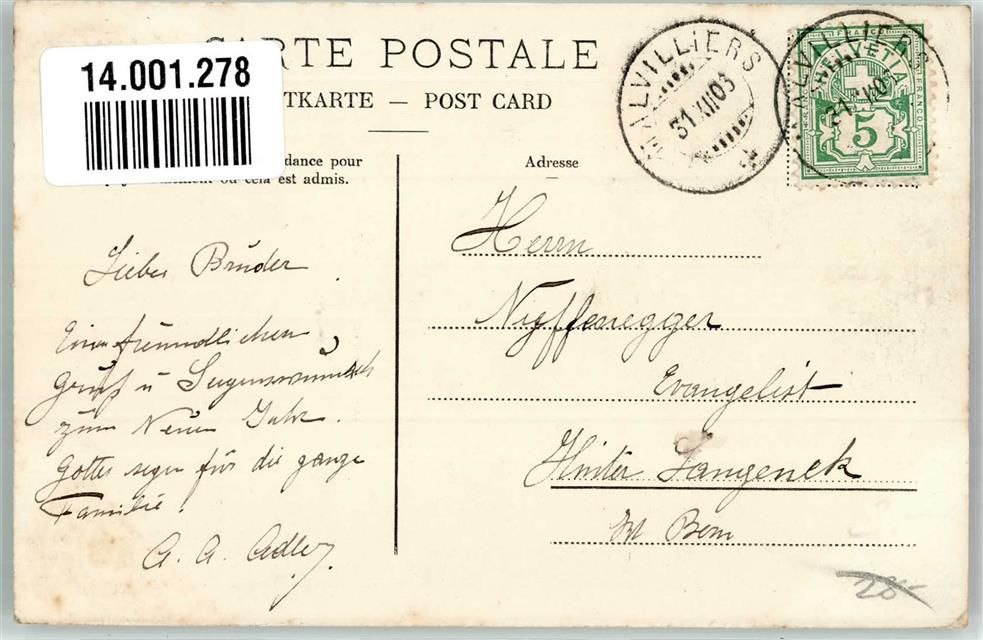 14.001.278
CARTE POSTALE
TKARTE — POST CARD
dance pour
ou cela est admis.
Adresse
MALVILLIERS
31.XII.03
MALVILLIERS
HELVETIA
FRANCO
5
Lieber Bruder
Einen freundlichen
Gruß u Segenswunsch
zum Neuen Jahr.
Gottes segen für die ganze
Familie.
A. A. Adler
Herrn
Nyffenegger
Evangelist
Hinter Langenek
Kt Bern
28